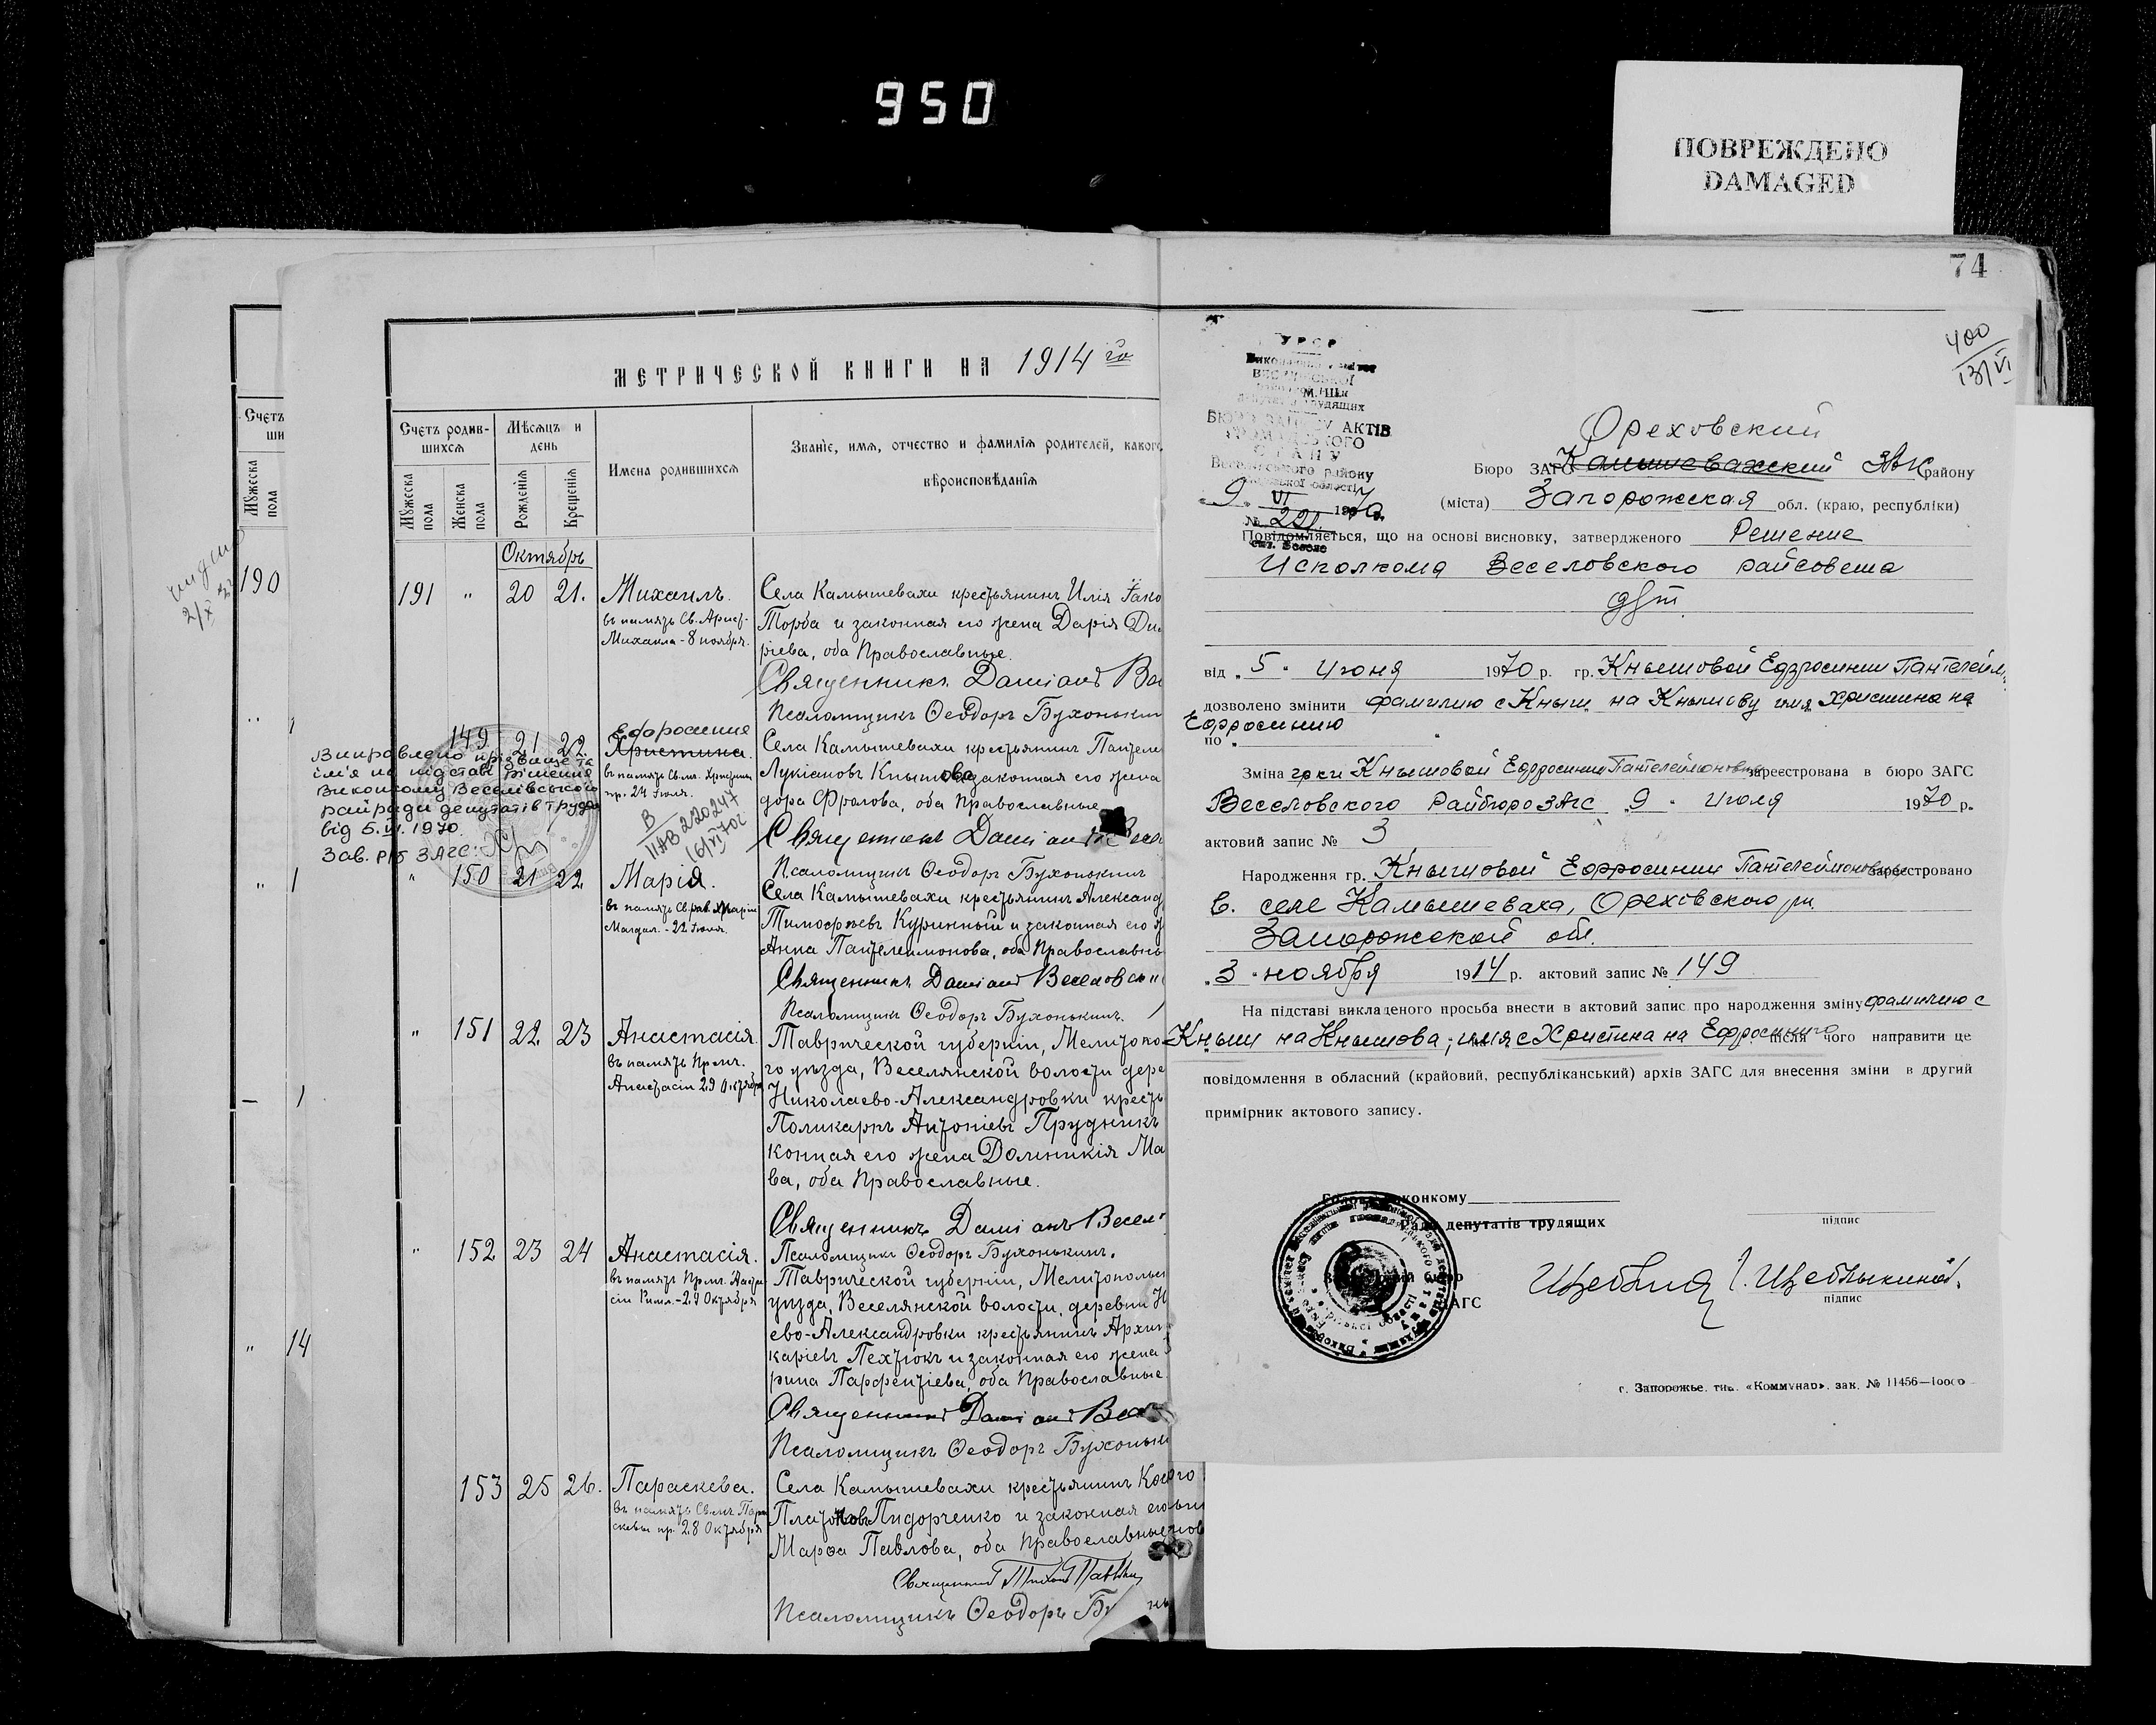 950
ПОВРЕЖДЕНО
DAMAGED
74
Счетъ
ши
Мꙋжеска пола
190
"
" 1
— 1
" 14
МЕТРИЧЕСКОЙ КНИГИ НА 1914 го
Счетъ родившихсѧ
Мꙋжеска пола
Женска пола
Мѣсѧцъ и день
Рожденїѧ
Крещенїѧ
Имена родившихсѧ
Званїе, имѧ, отчество и фамилїѧ родителей, какого
вѣроисповѣданїѧ
Октябрь
191 " 20 21. Михаилъ.
въ память Св. Арист-
Михаила - 8 ноября.
Села Камышевахи крестьянинъ Илія Іако
Торба и законная его жена Дарія Ди
ріева, оба Православные.
Священникъ Даміанъ Ве
Псаломщикъ Ѳеодоръ Бухонькин
149 21 22. Ефросиния
Христина.
въ память Св. мч. Христины
пр. 24 Іюля.
В
IIАВ 220247
16/VI 70г
Виправлено прізвище та
ім'я на підставі рішення
виконкому Веселівського
райради депутатів труд.
від 5.VI.1970.
Зав. р/б ЗАГС:
Села Камышевахи крестьянинъ Пантеле
Лукіановъ Кнышова законная его жена
дора Фролова, оба Православные
Священникъ Даміанъ
Псаломщикъ Ѳеодоръ Бухонькинъ
" 150 21 22 Марія.
въ память Св. рав. Маріи
Магдал. - 22 Іюля.
Села Камышевахи крестьянинъ Александ
Тимофѣевъ Куринный и законная его ж
Анна Пантелеимонова, оба Православны
Священникъ Даміанъ Веселовск
Псаломщикъ Ѳеодоръ Бухонькинъ.
" 151 22. 23 Анастасія.
въ память Прмч.
Анастасіи 29 Октября
Таврической губерніи, Мелитопо
го уѣзда, Веселянской волости дере
Николаево-Александровки кресть
Поликарпъ Антоніевъ Прудникъ
конная его жена Доминикія Ма
ва, оба Православные.
Священникъ Даміанъ Весел
Псаломщикъ Ѳеодоръ Бухонькинъ.
" 152 23 24 Анастасія.
въ память Прмч. Наста-
сіи Римл. - 29 Октября
Таврической губерніи, Мелитопольск
уѣзда, Веселянской волости, деревни Н
ево-Александровки крестьянинъ Архип
каріевъ Пехтюкъ и законная его жена
рина Парфентіева, оба Православные.
Священникъ Даміанъ Ве
Псаломщикъ Ѳеодоръ Бухоньки
153 25 26. Параскева.
въ память Св. мч. Пара
скевы пр. 28 Октября
Села Камышевахи крестьянинъ Ко
Платоновъ Пидорченко и законная его
Марѳа Павлова, оба Православные
Священникъ Тихонъ
Псаломщикъ Ѳеодоръ Бу
400
13/VI
УРСР
М. Ш.
трудящих
БЮРО ЗАПИСУ АКТІВ
ГРОМАДСЬКОГО
СТАНУ
Веселівського району
9. VI 1970 р.
№ 221.
смт. Веселе
Ореховский
Бюро ЗАГС Камышевахский ЗАГС району
(міста) Запорожская обл. (краю, республіки)
Повідомляється, що на основі висновку, затвердженого Решение
Исполкома Веселовского райсовета
дт
від „5" июня 1970 р. гр. Кнышовой Ефросинии Пантелейм
дозволено змінити фамилию с Кныш на Кнышову имя Христина на
Ефросинию
по „
Зміна гр-ки Кнышовой Ефросинии Пантелеймоновны зареєстрована в бюро ЗАГС
Веселовского Райбюро ЗАГС „9" Июня 1970 р.
актовий запис № 3
Народження гр. Кнышовой Ефросинии Пантелеймоновны зареєстровано
в. селе Камышеваха, Ореховского рн.
Запорожской обл.
„3" ноября 1914 р. актовий запис № 149
На підставі викладеного просьба внести в актовий запис про народження зміну фамилию с
Кныш на Кнышова; имя с Христина на Ефросиния після чого направити це
повідомлення в обласний (крайовий, республіканський) архів ЗАГС для внесення зміни в другий
примірник актового запису.
Голова виконкому
Ради депутатів трудящих
підпис
Завідуючий бюро
ЗАГС
Щеблыкина.
підпис
г. Запорожье, тип. «Коммунар», зак. № 11456—10000